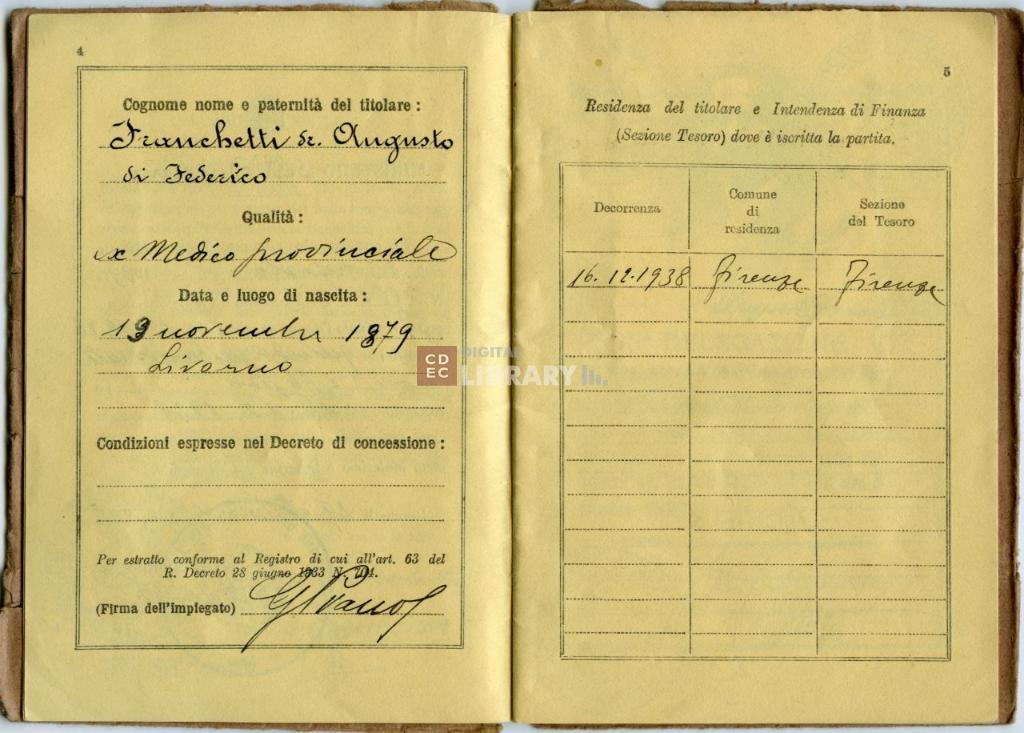 4
Cognome nome e paternità del titolare :
Franchetti dr. Augusto
di Federico
Qualità :
ex Medico provinciale
Data e luogo di nascita :
19 novembre 1879
Livorno
Condizioni espresse nel Decreto di concessione :
Per estratto conforme al Registro di cui all'art. 63 del
R. Decreto 28 giugno 1933 N. 704.
(Firma dell'impiegato)
5
Residenza del titolare e Intendenza di Finanza
(Sezione Tesoro) dove è iscritta la partita.
Decorrenza
Comune
di
residenza
Sezione
del Tesoro
16.12.1938 Firenze Firenze
CD
EC
DIGITAL
LIBRARY